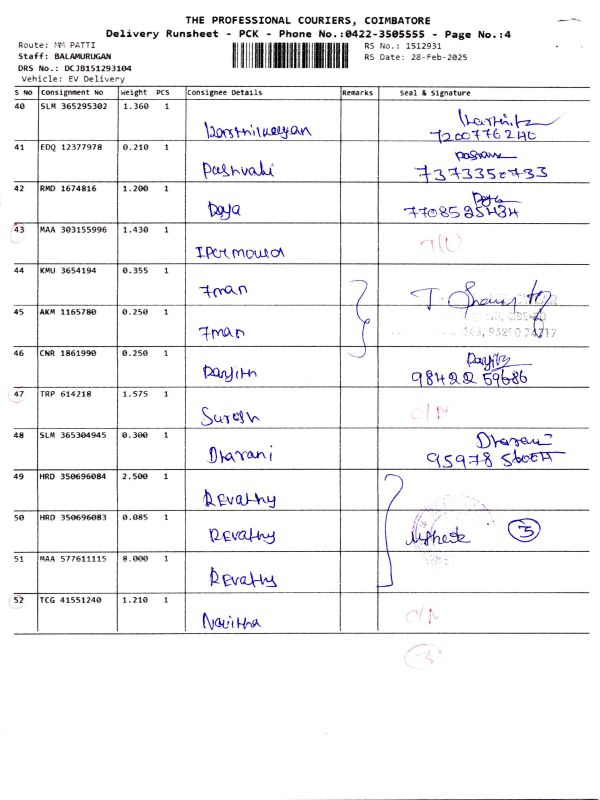 THE PROFESSIONAL COURIERS, COIMBATORE
Delivery Runsheet - PCK - Phone No.:0422-3505555 - Page No.:4
Route: MM PATTI RS No.: 1512931
Staff: BALAMURUGAN RS Date: 28-Feb-2025
DRS No.: DCJB151293104
Vehicle: EV Delivery
S No Consignment No Weight PCS Consignee Details Remarks Seal & Signature
40 SLM 365295302 1.360 1
7200776240
41 EDQ 12377978 0.210 1
7373350733
42 RMD 1674816 1.200 1 Daya
7708525434
43 MAA 303155996 1.430 1
44 KMU 3654194 0.355 1 7man
45 AKM 1165780 0.250 1 7man
46 CNR 1861990 0.250 1 Danjith
9842259686
47 TRP 614218 1.575 1 Suresh
48 SLM 365304945 0.300 1 Dharani Dharani
95978
49 HRD 350696084 2.500 1 Revathy
50 HRD 350696083 0.085 1 Revathy 3
51 MAA 577611115 8.000 1 Revathy
52 TCG 41551240 1.210 1 Navitha
-3